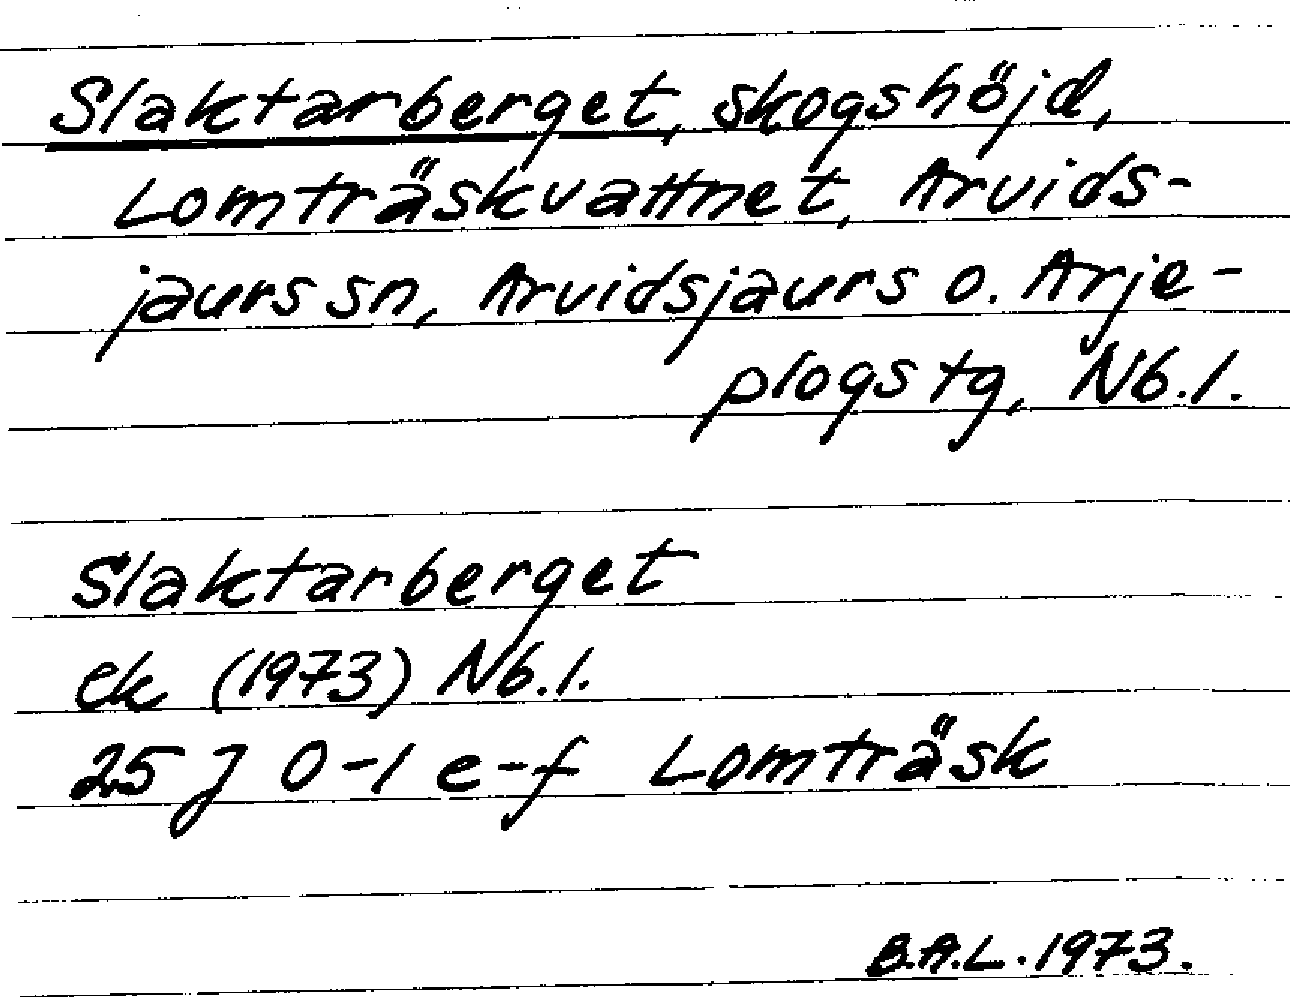 Slaktarberget, skogshöjd,
Lomträskvattnet, Arvids-
jaurs sn, Arvidsjaurs o. Arje-
plogs tg, Nb.l.
Slaktarberget
ek (1973) Nb.l.
25 J 0-1 e-f Lomträsk
B.A.L. 1973.